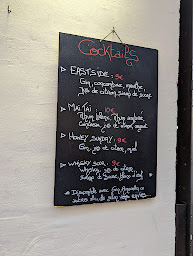 Cocktails
▷ EASTSIDE : 9€
Gin, concombre, menthe,
jus de citron, sirop de sucre
▷ MAI TAI : 10€
Rhum blanc, Rhum ambré,
Curaçao, jus de citron, orgeat
▷ HONEY SUNDAY : 8€
Gin, jus de citron, miel
▷ WHISKY SOUR : 9€
Whisky, jus de citron,
sirop de sucre, blanc d'œuf